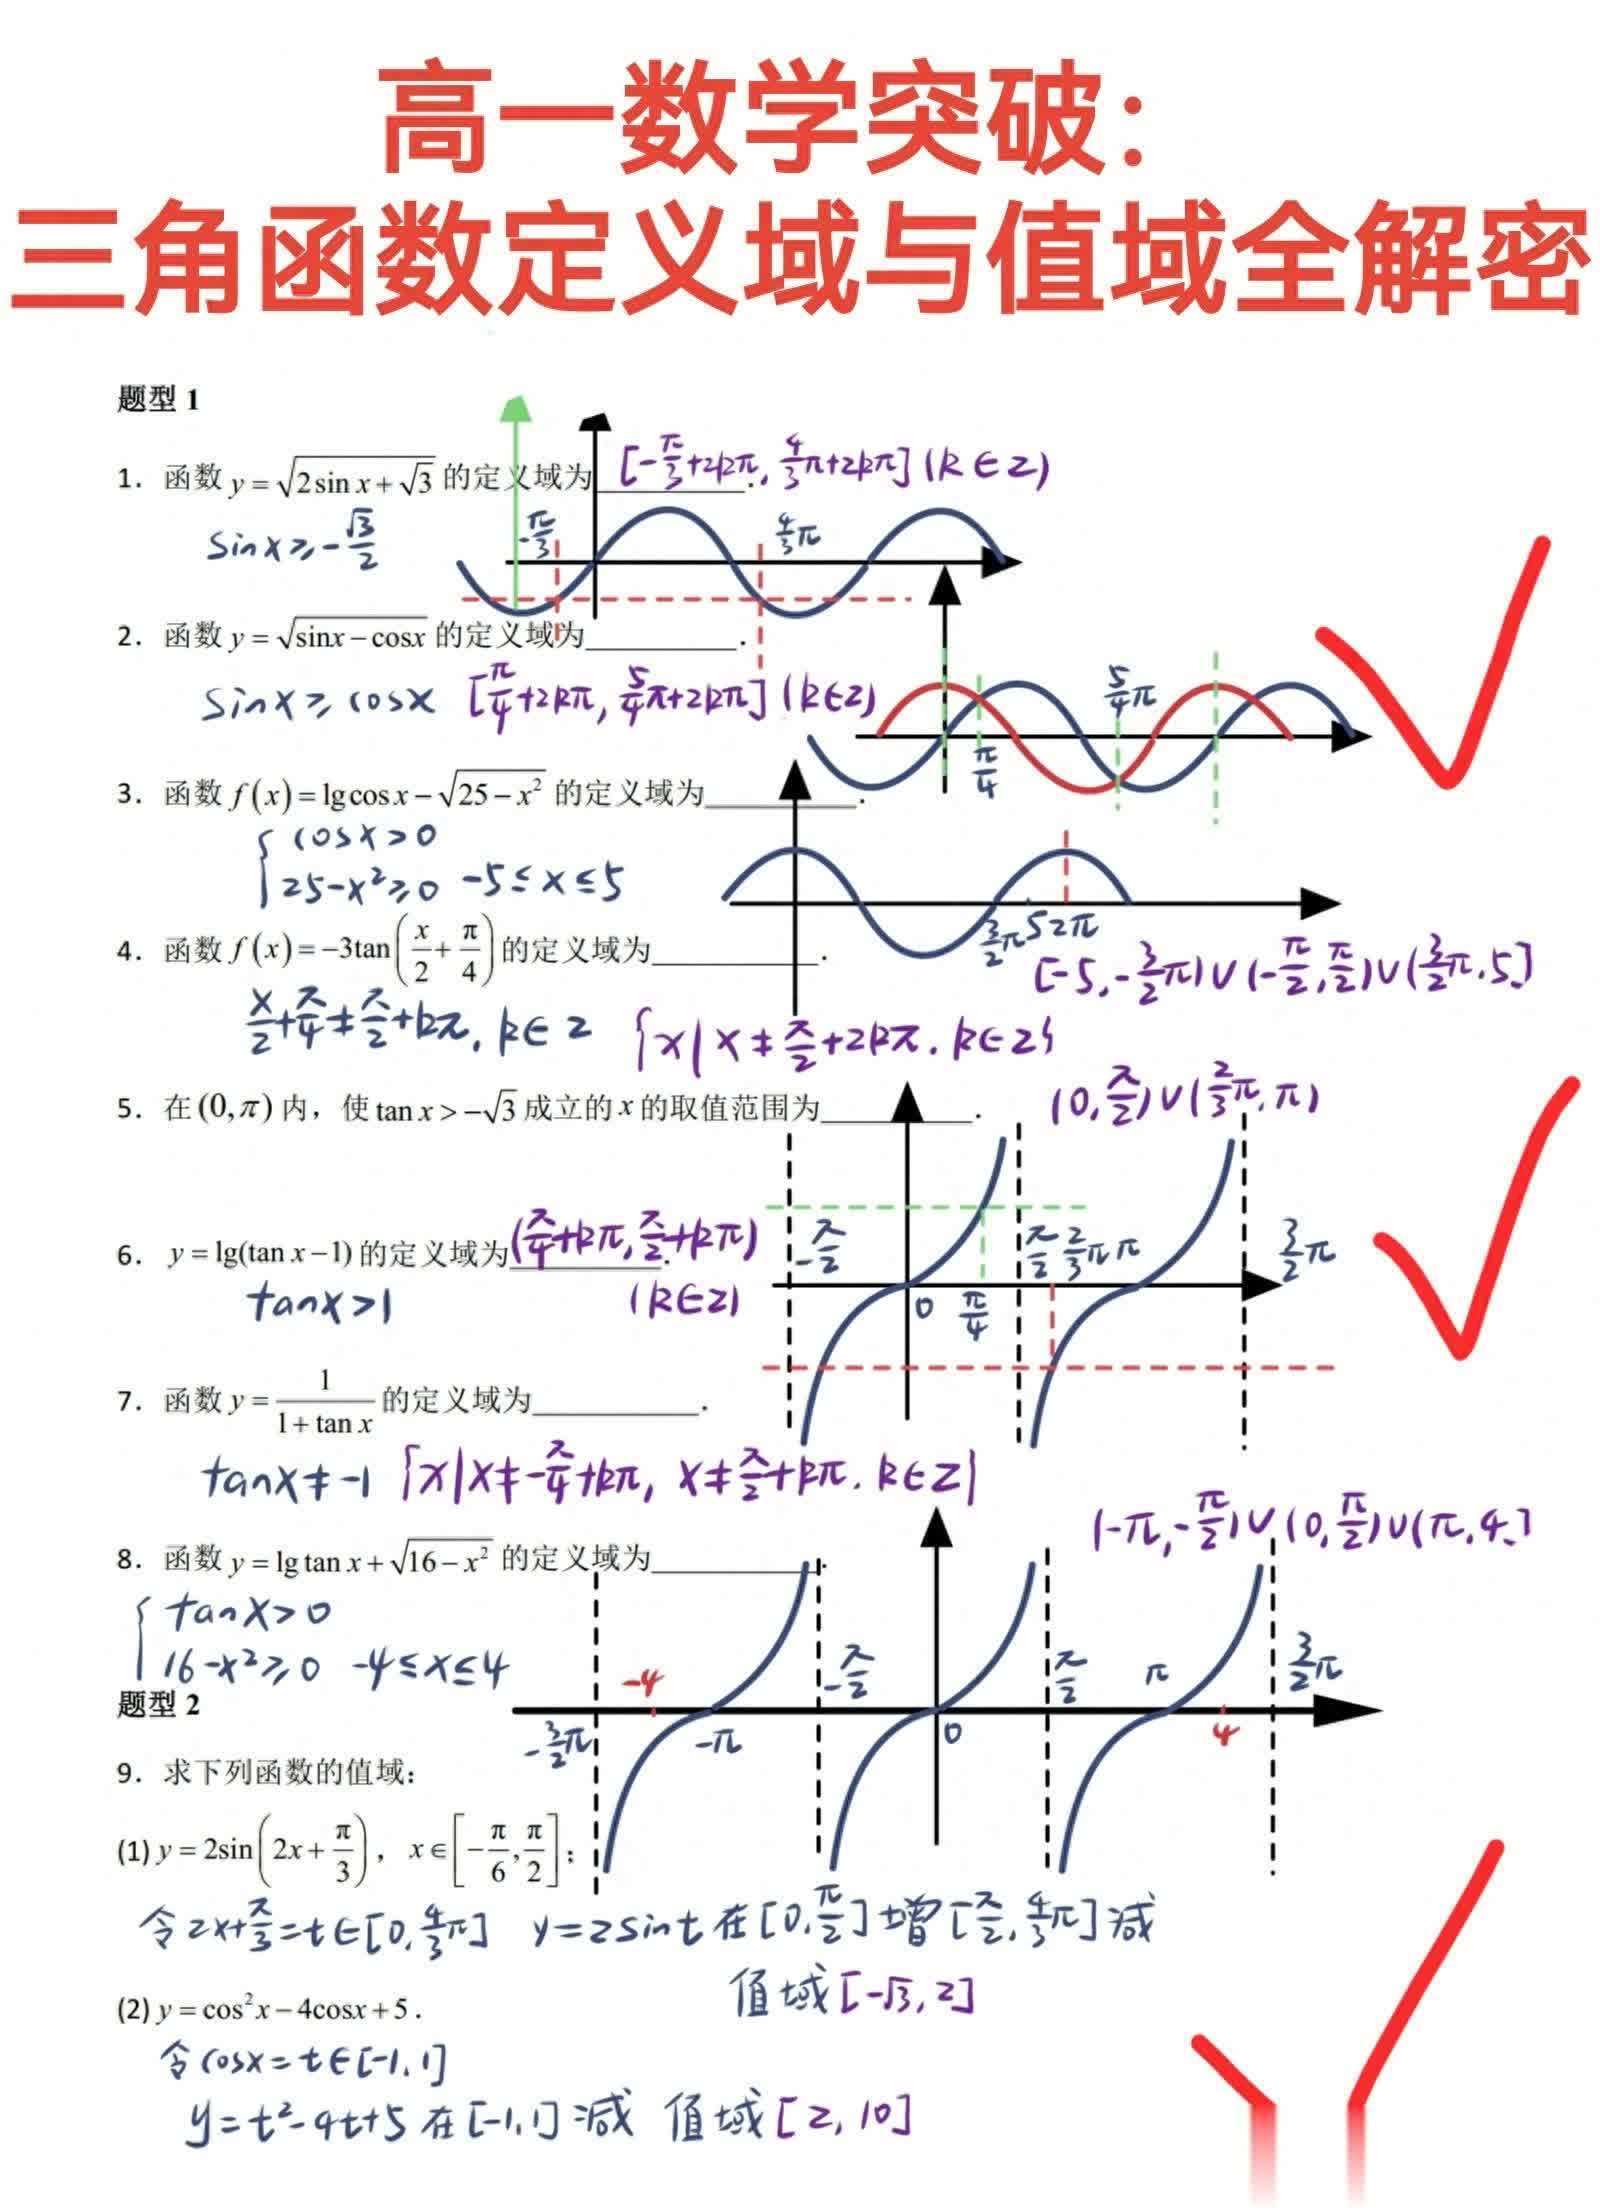 高一数学突破：
三角函数定义域与值域全解密
题型 1
1. 函数 y = √(2sin x + √3) 的定义域为________. [-π/3+2kπ, 4/3π+2kπ] (k∈Z)
sinx ≥ -√3/2
-π/3 4/3π
2. 函数 y = √(sinx - cosx) 的定义域为________.
sinx ≥ cosx [π/4+2kπ, 5/4π+2kπ] (k∈Z)
π/4 5/4π
3. 函数 f(x) = lg cos x - √(25 - x²) 的定义域为________.
{ cosx > 0
25-x² ≥ 0 -5 ≤ x ≤ 5
3/2π 5 2π
[-5, -3/2π) ∪ (-π/2, π/2) ∪ (3/2π, 5]
4. 函数 f(x) = -3tan(x/2 + π/4) 的定义域为________.
x/2 + π/4 ≠ π/2 + kπ, k∈Z {x | x ≠ π/2 + 2kπ, k∈Z}
5. 在 (0, π) 内，使 tan x > -√3 成立的 x 的取值范围为________. (0, π/2) ∪ (2/3π, π)
-π/2 0 π/4 π/2 2/3π π 3/2π
6. y = lg(tan x - 1) 的定义域为 (π/4+kπ, π/2+kπ).
tanx > 1 (k∈Z)
7. 函数 y = 1/(1 + tan x) 的定义域为________.
tanx ≠ -1 {x | x ≠ -π/4+kπ, x ≠ π/2+kπ, k∈Z}
8. 函数 y = lg tan x + √(16 - x²) 的定义域为________. (-π, -π/2) ∪ (0, π/2) ∪ (π, 4]
{ tanx > 0
16-x² ≥ 0 -4 ≤ x ≤ 4
-3/2π -4 -π -π/2 0 π/2 π 4 3/2π
题型 2
9. 求下列函数的值域：
(1) y = 2sin(2x + π/3)，x ∈ [-π/6, π/2]；
令2x+π/3=t∈[0, 4/3π] y=2sint在[0, π/2]增[π/2, 4/3π]减
值域[-√3, 2]
(2) y = cos²x - 4cosx + 5.
令cosx=t∈[-1,1]
y=t²-4t+5在[-1,1]减 值域[2, 10]